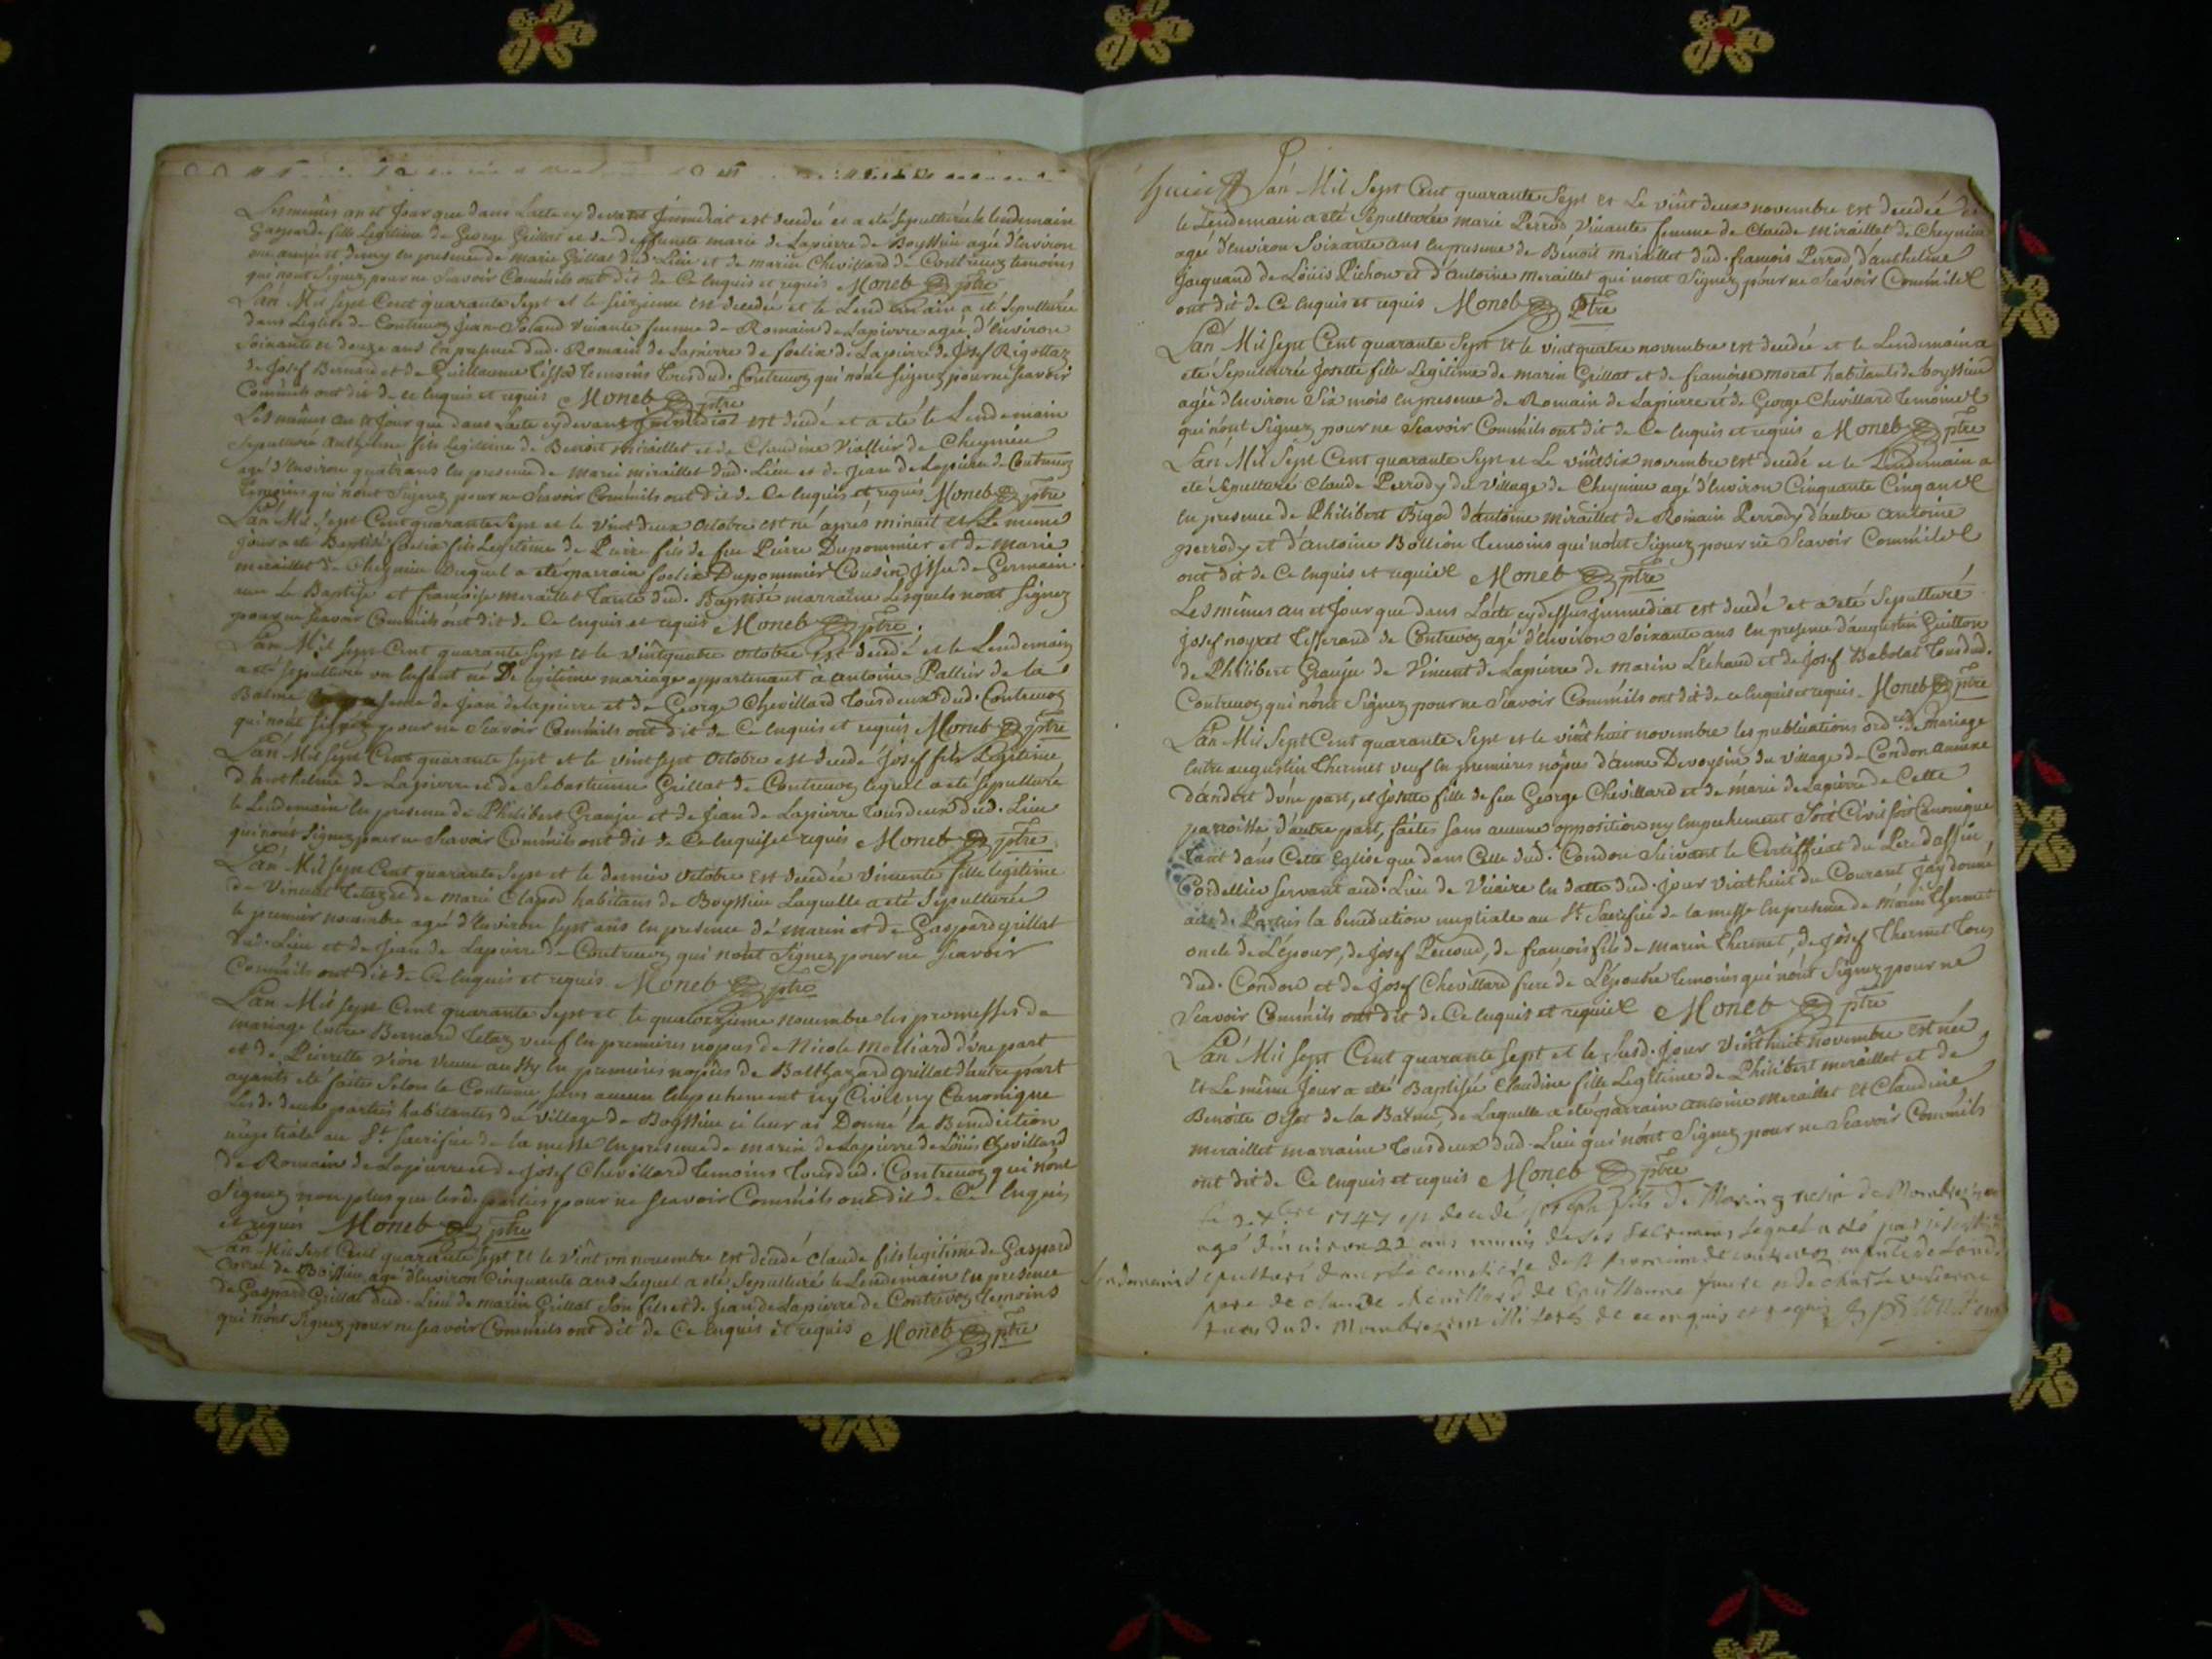 Les mêmes an et Jour que dans Lacte cy devant Jmmediat est decedée et a eté sepulturée le lendemain
Gasparde fille Legitime de George Grillat et de deffuncte marie de Lapierre de Boyssin agée d'Environ
une année et demy en presence de marin Grillat dud. Lieu et de marin Chevillard de Contrevoz temoins
qui nont Signez pour ne Scavoir Comm'ils ont dit de Ce Enquis et requis Moneb ptre
Lan Mil Sept Cent quarante Sept et le Seizieme est decedée et le Lendemain a eté Sepulturée
dans Leglise de Contrevoz Jeane Poland vivante femme de Romain de Lapierre agée d'Environ
Soixante et douze ans En presence dud. Romain de Lapierre de foelix de Lapierre de Josef Rigottaz
de Josef Bernard et de Guillaume Tissot temoins tous dud. Contrevoz qui nont Signez pour ne Scavoir
Comm'ils ont dit de ce Enquis et requis Moneb ptre
Les mêmes an et Jour que dans Lacte cy devant Jmmediat est decedé et a eté le Lendemain
Sepulturé anthelme fils Legitime de Benoit miraillet et de Claudine Viallier de Cheynieu
agé d'Environ quatr'ans En presence de marin miraillet dud. Lieu et de Jean de Lapierre de Contrevoz
temoins qui n'ont Signez pour ne Scavoir Comm'ils ont dit de Ce Enquis et requis Moneb ptre
Lan Mil Sept Cent quarante Sept et le Vint deux Octobre est né aprés minuit et Le meme
Jour a eté Baptisé foelix fils Legitime de Pierre fils de feu Pierre Dupommier et de Marie
meraillet de Cheynieu Duquel a eté parrain foelix Dupommier Cousin Jssu de Germain
avec Le Baptisé et francoise meraillet Tante dud. Baptisé marraine Lesquels nont Signez
pour ne Scavoir Comm'ils ont dit de Ce Enquis et requis Moneb ptre
Lan Mil Sept Cent quarante Sept et le Vint quatre Octobre est decedé et le Lendemain
a eté sepulturé un Enfant né De legitime mariage appartenant a antoine Pallier de la
Balme presence de Jean de Lapierre et de George Chevillard tous deux dud. Contrevoz
qui nont Signez pour ne Scavoir Comm'ils ont dit de Ce Enquis et requis Moneb ptre
Lan Mil Sept Cent quarante Sept et le vint Sept Octobre est decedé Josef fils Legitime
d'anthelme de Lapierre et de Sebastienne Grillat de Contrevoz lequel a eté Sepulturé
le Lendemain En presence de Philibert Granju et de Jean de Lapierre tous deux dud. Lieu
qui nont Signez pour ne Scavoir Comm'ils ont dit de Ce Enquis et requis Moneb ptre
Lan Mil Sept Cent quarante Sept et le dernier Octobre Est decedée Vincente fille legitime
de Vincent Tetaz et de marie Clapod habitans de Boyssieu Laquelle a eté Sepulturée
le premier novembre agée d'Environ Sept ans En presence de marin et de Gaspard grillat
dud. Lieu et de Jean de Lapierre de Contrevoz qui n'ont Signez pour ne Scavoir
Comm'ils ont dit de Ce Enquis et requis Moneb ptre
Lan Mil Sept Cent quarante Sept et le quatorzieme novembre les promesses de
mariage Entre Bernard Tetaz veuf En premieres nopces de Nicole Molliard d'une part
et de Pierrette veuve aussy En premieres nopces de Balthazard grillat d'autre part
ayants eté faites Selon la Coutume Sans aucun Empechement ny Civil ny Canonique
Lesd. deux parties habitantes du village de Boyssieu ie leur ai Donné la Benediction
nuptiale au St. Sacrifice de la messe En presence de marin de Lapierre de Loüis Chevillard
de Romain de Lapierre et de Josef Chevillard temoins tous dud. Contrevoz qui n'ont
Signez non plus que lesd. parties pour ne Scavoir Comm'ils ont dit de Ce Enquis
et requis Moneb ptre
Lan Mil Sept Cent quarante Sept et le Vint un novembre est decedé Claude fils legitime de Gaspard
de Boissieu agé d'Environ Cinquante ans Lequel a eté Sepulturé le Lendemain En presence
de Gaspard Grillat dud. Lieu de marin Grillat Son fils et de Jean de Lapierre de Contrevoz temoins
qui nont Signez pour ne Scavoir Comm'ils ont dit de Ce Enquis et requis Moneb ptre
Lan Mil Sept Cent quarante Sept et Le vint deux novembre est decedée et
le Lendemain a eté Sepulturée marie Perrod Vivante femme de Claude Miraillet de Cheynieu
agée d'Environ Soixante ans En presence de Benoit miraillet dud. francois Perrod d'anthelme
Jacquand de Loüis Pichon et d'antoine meraillet qui n'ont Signez pour ne Scavoir Comm'ils
ont dit de Ce Enquis et requis Moneb Ptre
Lan Mil Sept Cent quarante Sept et le vint quatre novembre est decedée et le Lendemain a
eté Sepulturée Josette fille Legitime de marin Grillat et de francoise morat habitants de boyssieu
agée d'Environ Six mois En presence de Romain de Lapierre et de George Chevillard temoins
qui n'ont Signez pour ne Scavoir Comm'ils ont dit de Ce Enquis et requis Moneb ptre
Lan Mil Sept Cent quarante Sept et Le vint six novembre est decedé et le Lendemain a
eté Sepulturé Claude Perrody du village de Cheynieu agé d'Environ Cinquante Cinq ans
En presence de Philibert Bigod d'antoine miraillet de Romain Perrody d'autre antoine
perrody et d'antoine Bollion temoins qui n'ont Signez pour ne Scavoir Comm'ils
ont dit de Ce Enquis et requis Moneb ptre
Les mêmes an et Jour que dans Lacte cy dessus Jmmediat est decedé et a eté Sepulturé
Josef noyret Tisserand de Contrevoz agé d'Environ Soixante ans En presence d'augustin Guitton
de Philibert Granju de Vincent de Lapierre de marin L'echaud et de Josef Babolat tous dud.
Contrevoz qui n'ont Signez pour ne Scavoir Comm'ils ont dit de ce Enquis et requis Moneb ptre
Lan Mil Sept Cent quarante Sept et le vint huit novembre les publications ord.res de mariage
Entre augustin Thermet veuf En premieres nopces d'anne Devoysin du village de Condon annexe
d'andert d'une part, et Josette fille de feu George Chevillard et de marie de Lapierre de Cette
parroisse d'autre part, faites Sans aucune opposition ny Empechement Soit Civil Soit Canonique
tant dans Cette Eglise que dans Celle dud. Condon Suivant le Certifficat du Pere
Cordellier Servant aud. Lieu de Vicaire En datte dud. jour vint huit du Courant J'ay donné
aux d. Parties la benediction nuptiale au St. Sacrifice de la messe En presence de marin Thermet
oncle de L'Epoux, de Josef Pecoud, de francois fils de marin Thermet, de Josef Thermet tous
dud. Condon et de Josef Chevillard frere de L'Epouse temoins qui n'ont Signez pour ne
Scavoir Comm'ils ont dit de Ce Enquis et requis Moneb ptre
Lan Mil Sept Cent quarante Sept et le Susd. Jour Vint huit novembre est née
et Le même Jour a eté Baptisée Claudine fille Legitime de Philibert meraillet et de
Benoite Orset de la Balme, de Laquelle a eté parrain antoine Meraillet et Claudine
meraillet marraine tous deux dud. Lieu qui n'ont Signez pour ne Scavoir Comm'ils
ont dit de Ce Enquis et requis Moneb ptre
1747 est decedé joseph fils de Marin de
agé d'environ 22 ans munis de ses sacremens lequel a eté par
lendemain sepulturé dans le cemetiere de st de contrevoz
pere de claude chevillard de Guillaume et de
dud. de ce enquis et requis